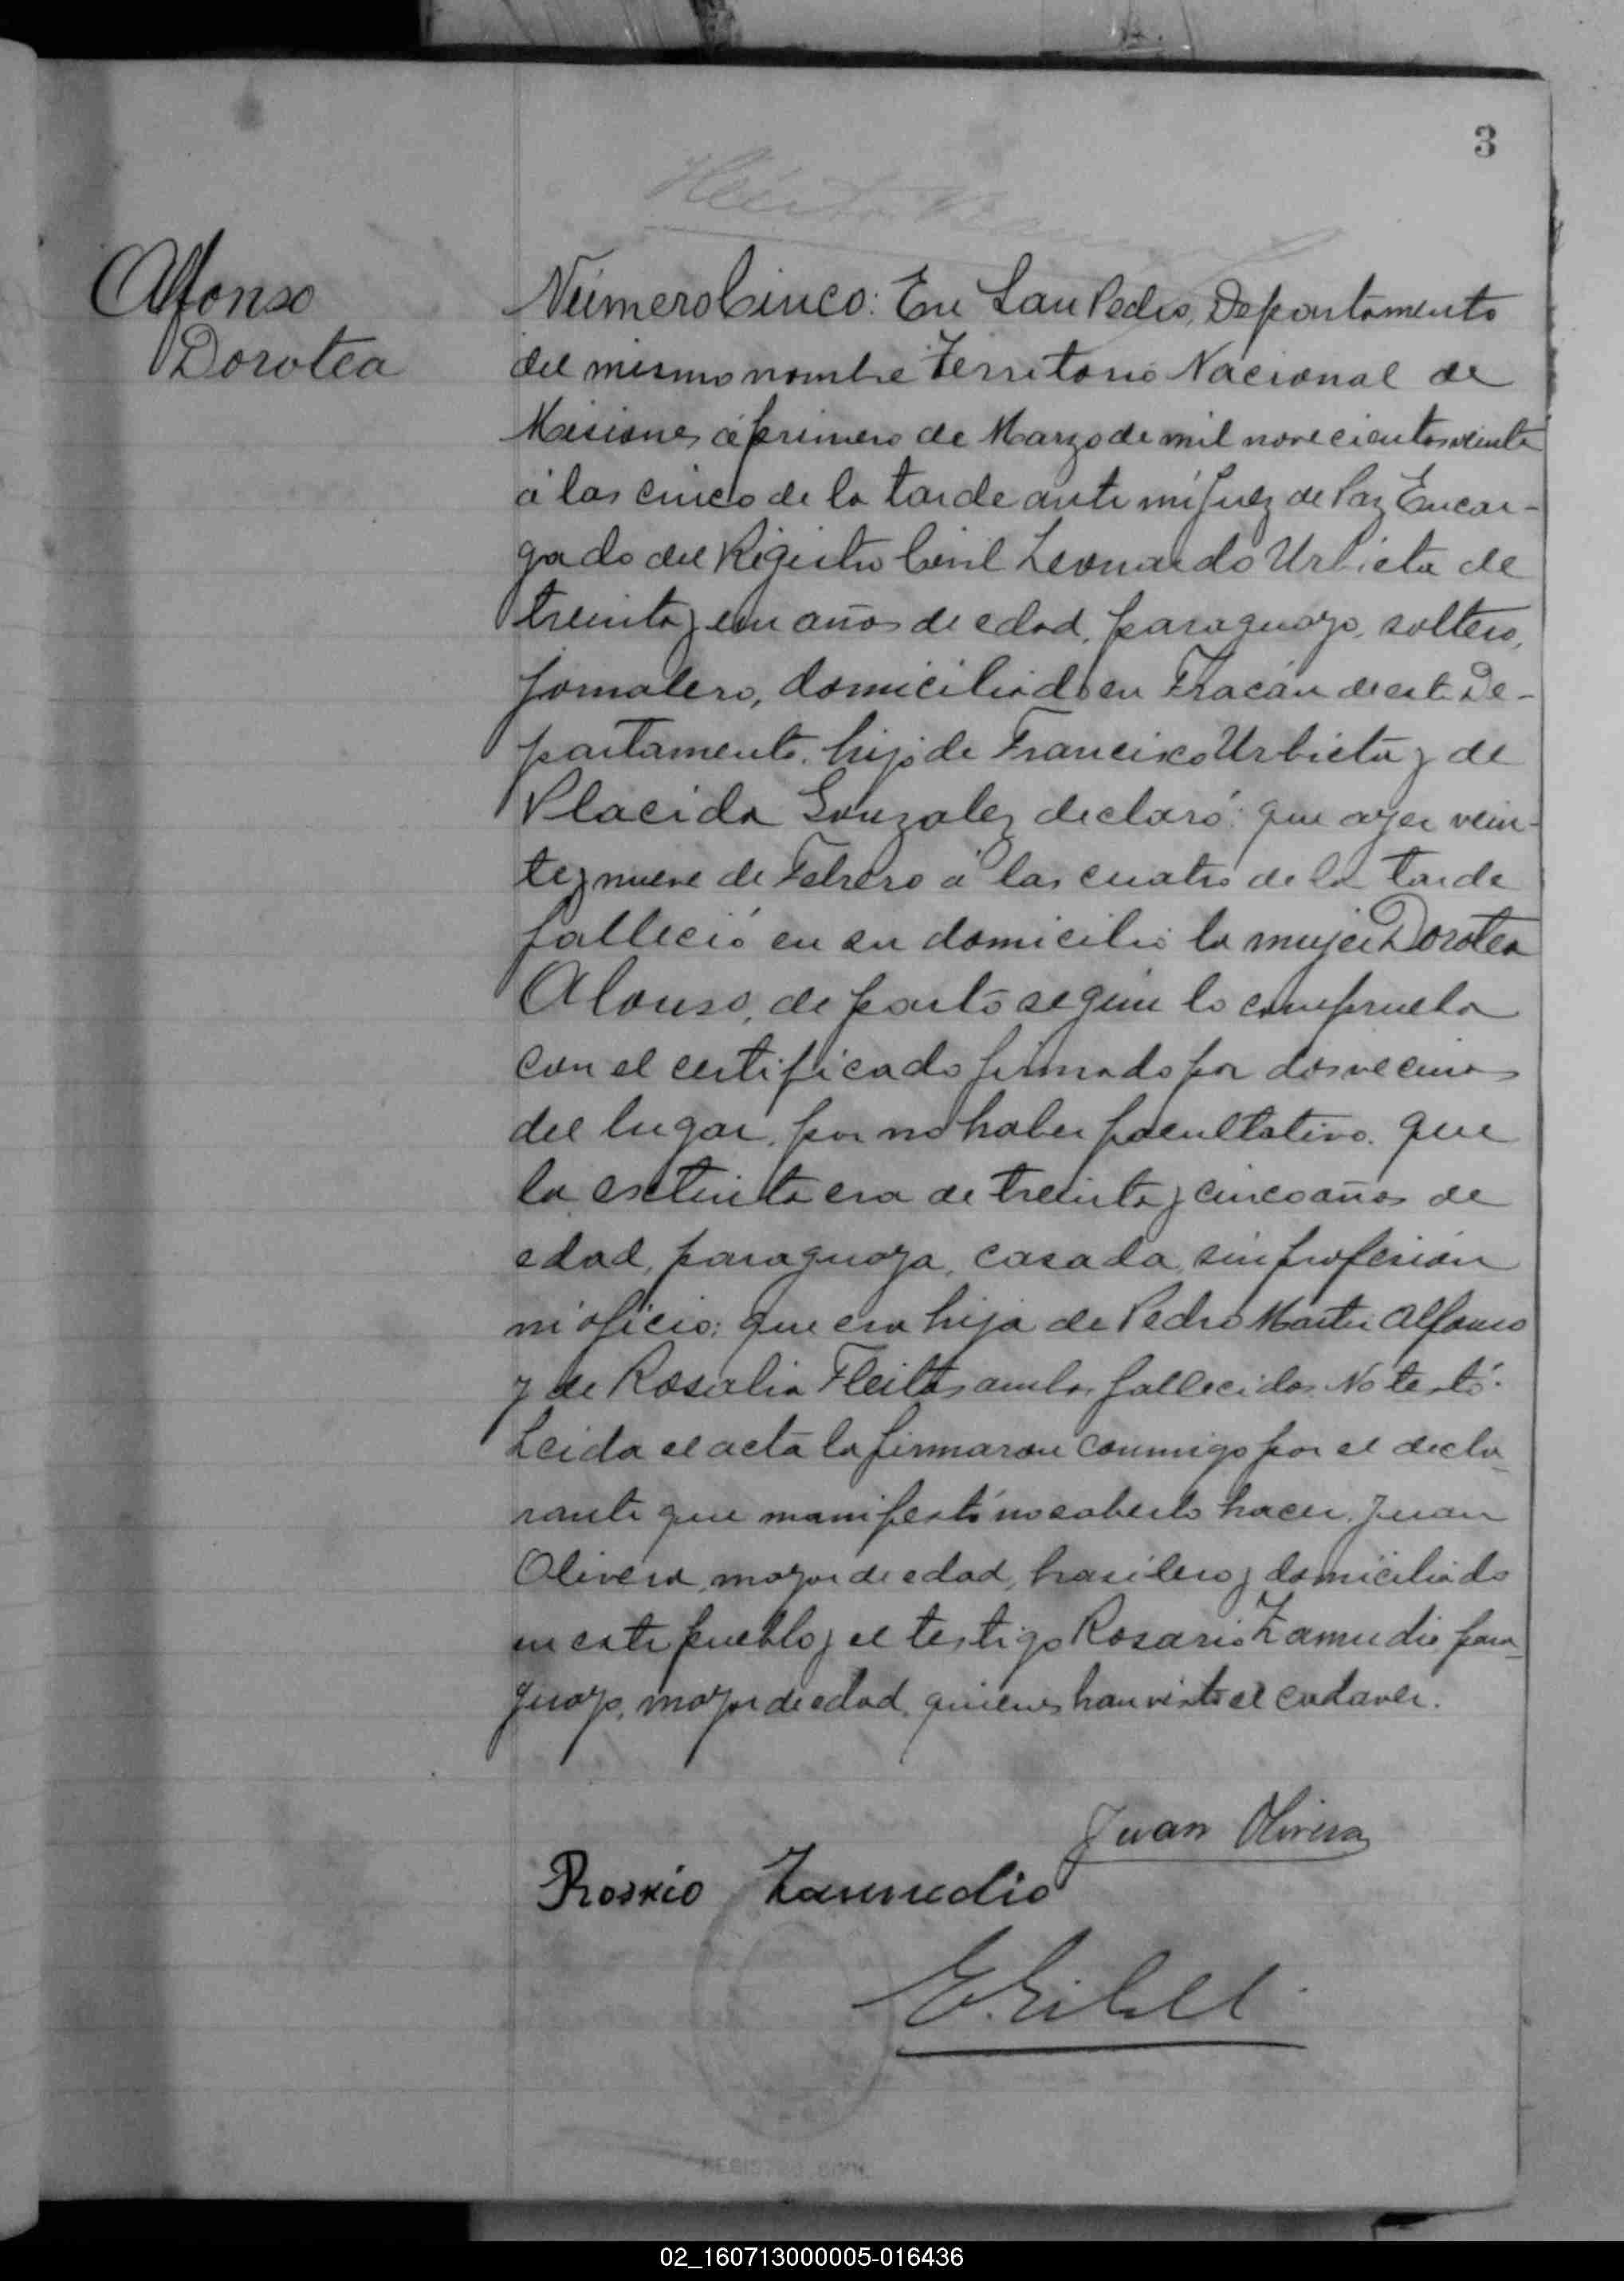 3
Alfonso
Dorotea
Número Cinco: En San Pedro, Departamento
del mismo nombre Territorio Nacional de
Misiones á primero de Marzo de mil novecientos veinte
á las cinco de la tarde ante mí Juez de Paz Encar-
gado del Registro Civil Leonardo Urbieta de
treinta y un años de edad, paraguayo, soltero,
jornalero, domiciliado en Fracán de este De-
partamento, hijo de Francisco Urbieta y de
Placida Gonzalez declaró: que ayer vein-
te y nueve de Febrero á las cuatro de la tarde
falleció en su domicilio la mujer Dorotea
Alonso, de parto según lo comprueba
con el certificado firmado por dos vecinos
del lugar, por no haber facultativo. que
la estinta era de treinta y cinco años de
edad, paraguaya, casada, sin profesión
ni oficio: que era hija de Pedro Martir Alfonso
y de Rosalia Fleitas ambos fallecidos. No testó.
Leida el acta la firmaron conmigo por el decla-
rante que manifestó no saberlo hacer, Juan
Olivera, mayor de edad, brasilero y domiciliado
en este pueblo y el testigo Rosario Zamudio para-
guayo, mayor de edad, quienes han visto el cadaver.
Juan Olivera
Rosrio Zamudio
02_160713000005-016436